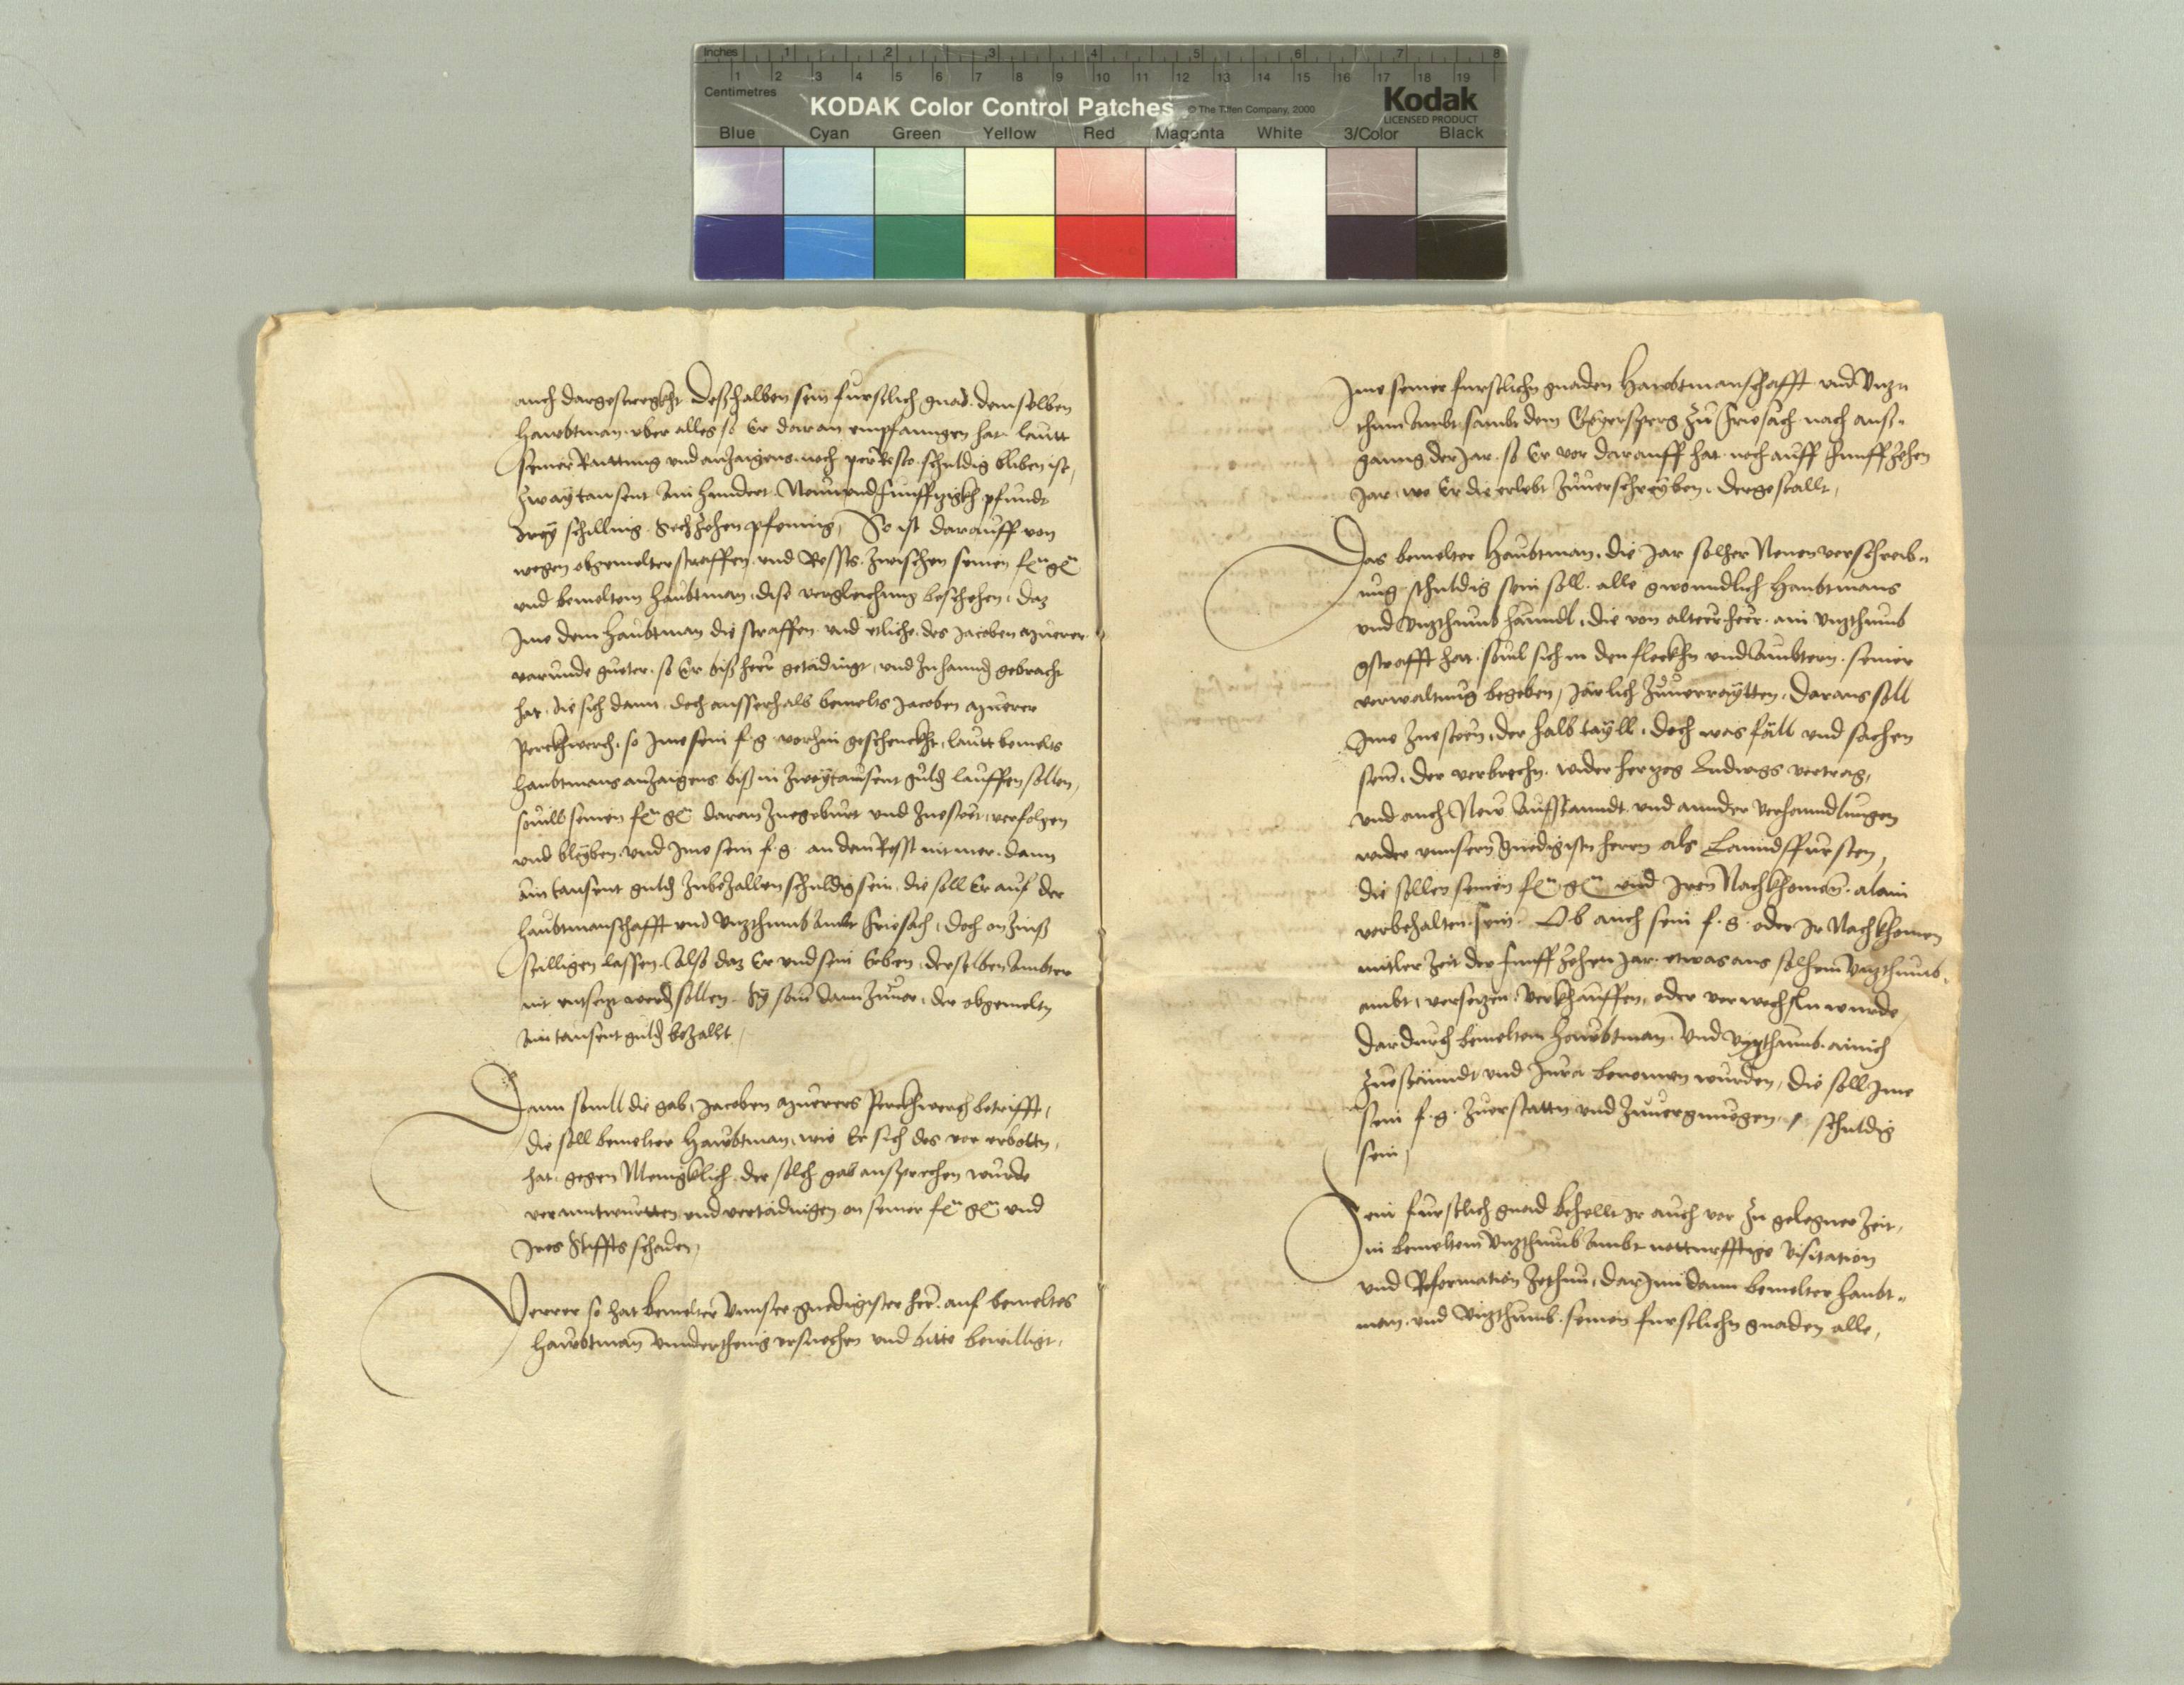 Inches 1 2 3 4 5 6 7 8
Centimetres 1 2 3 4 5 6 7 8 9 10 11 12 13 14 15 16 17 18 19
KODAK Color Control Patches © The Tiffen Company, 2000 Kodak
LICENSED PRODUCT
Blue Cyan Green Yellow Red Magenta White 3/Color Black
auch dargestregkht Deßhalben sein furstlich gnad. demselben
Hawbtman. vber alles so Er daran empfanngen hat. lautt
seiner Raittung vnd anzaigens. noch per Resto. schuldig bliben ist,
Zwaytausent Ain hundert Neunundfunffzigkh pfundt
drey schilling Sechzehen pfening, So ist darauff von
wegen obgemelter straffen. vnd Ressts. zwischen seinen f. g.
vnd bemeltem Haubtman, dise vergleichung beschehen, das
Ime dem Haubtman die straffen. vnd etliche. des Jacoben
varunde gueter. so Er biß heer getädingt, vnd zuhannd gebracht
hat, die sich dann. doch ausserhalb bemelts Jacoben
Perckhwerch. so Ime sein f. g. vorhin geschenckht, lautt bemelts
haubtmans anzaigens biß in Zwaytausent guld lauffen sollen,
souill seinen f. g. daran zuegeburt vnd zuesteet, verfolgen
vnd bleyben. vnd Ime sein f. g. an dem Resst nit mer. dann
Ain tausent guld zubezallen schuldig sein, die soll Er auf der
Haubtmanschafft vnd Vitzthumb Ambt Friesach, doch on Zinß
stilligen lassen. Also das Er vnd sein Erben, derselben Ambter
nit entsetzt werd sollen. Sy sein dann zuuor, der obgemeltn
Ain tausent guld bezallt,
Dann souill die gab, Jacoben Perckhwerch betrifft,
die soll bemelter Hawbtman, wie Er sich des vor erbottn,
hat, gegen Menigklich. der solch gab ansprechen wurde
verantwurtten vnd vertädingen on seiner f. g. vnd
Ires Stiffts schaden,
Verrer so hat bemelter Vnnser gnedigister her. auf bemeltes
Hawbtman vnnderthenig ersuechen vnd bitte bewilligt,
Ime seiner furstlichn gnaden Hawbtmanschafft vnd Vitz
thum Ambt sambt dem Geyersperg zu Friesach nach auß=
ganng der Jar. so Er vor darauff hat. noch auff Funffzehen
Jar, wo Er die erlebt zuuerschreyben, dergestallt,
Das bemelter Haubtman, die Jar solher Neuen verschreib=
ung schuldig sein soll. alle gwonndlich Haubtmans
vnd Vitzthumb hanndl, die von alter heer. ain Vitzthumb
gstrafft hat. souil sich in den fleckhn vnd Ambtern. seiner
verwaltung begeben, Järlich zuuerraytten, daraus soll
Ime zuesteen, der halb tayll, doch was fäll vnd sachen
sein, der verbrechn. wider Hertzog Ludwigs vertrag,
vnd auch New Aufstanndt. vnd annder verhanndlungen
wider vnnsern gnedigistn herrn als Lanndsfursten,
die sollen seinen f. g. vnd Iren Nachkhomen. alain
vorbehalten sein. Ob auch sein f. g. oder Ir Nachkhomen
mitler Zeit der funffzehen Jar. etwas aus solhem Vitzthumb
ambt, versetzen, verkhauffen, oder verwechsln wurde,
dardurch bemeltem Hawbtman Vnd Vitzthumb. ainich
Zuestänndt vnd benomen wurden, die soll Ime
sein f. g. zuerstattn vnd zuuergnuegen, schuldig
sein,
Sein furstlich gnad behellt Ir auch vor Zu gelegner Zeit,
in bemeltem Vitzthumb Ambt notturfftige Visitation
vnd Reformation zethun, darInn dann bemelter haubt=
man. vnd Vitzthumb. seinen furstlichn gnaden alle,